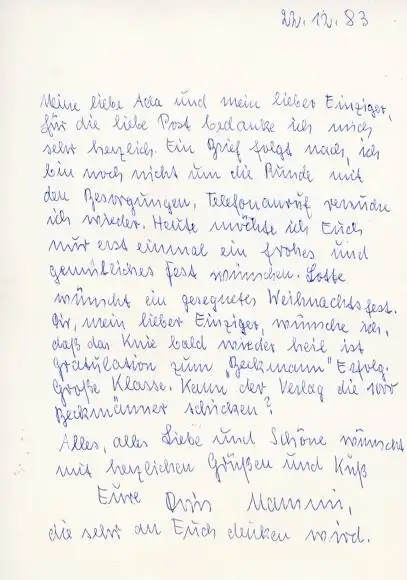 22.12.83
Meine liebe Ada und mein lieber Einziger,
für die liebe Post bedanke ich mich
sehr herzlich. Ein Brief folgt nach, ich
bin noch nicht um die Runde mit
den Besorgungen, Telefonanruf versuche
ich wieder. Heute möchte ich Euch
nur erst einmal ein frohes und
gemütliches Fest wünschen. Lotte
wünscht ein gesegnetes Weihnachtsfest.
Dir, mein lieber Einziger, wünsche ich,
daß das Knie bald wieder heil ist
Gratulation zum "Beckmann" Erfolg.
Große Klasse. Kann der Verlag die
Beckmänner schicken?
Alles, alles Liebe und Schöne wünscht
mit herzlichen Grüßen und Kuß
Eure Mammi,
die sehr an Euch denken wird.